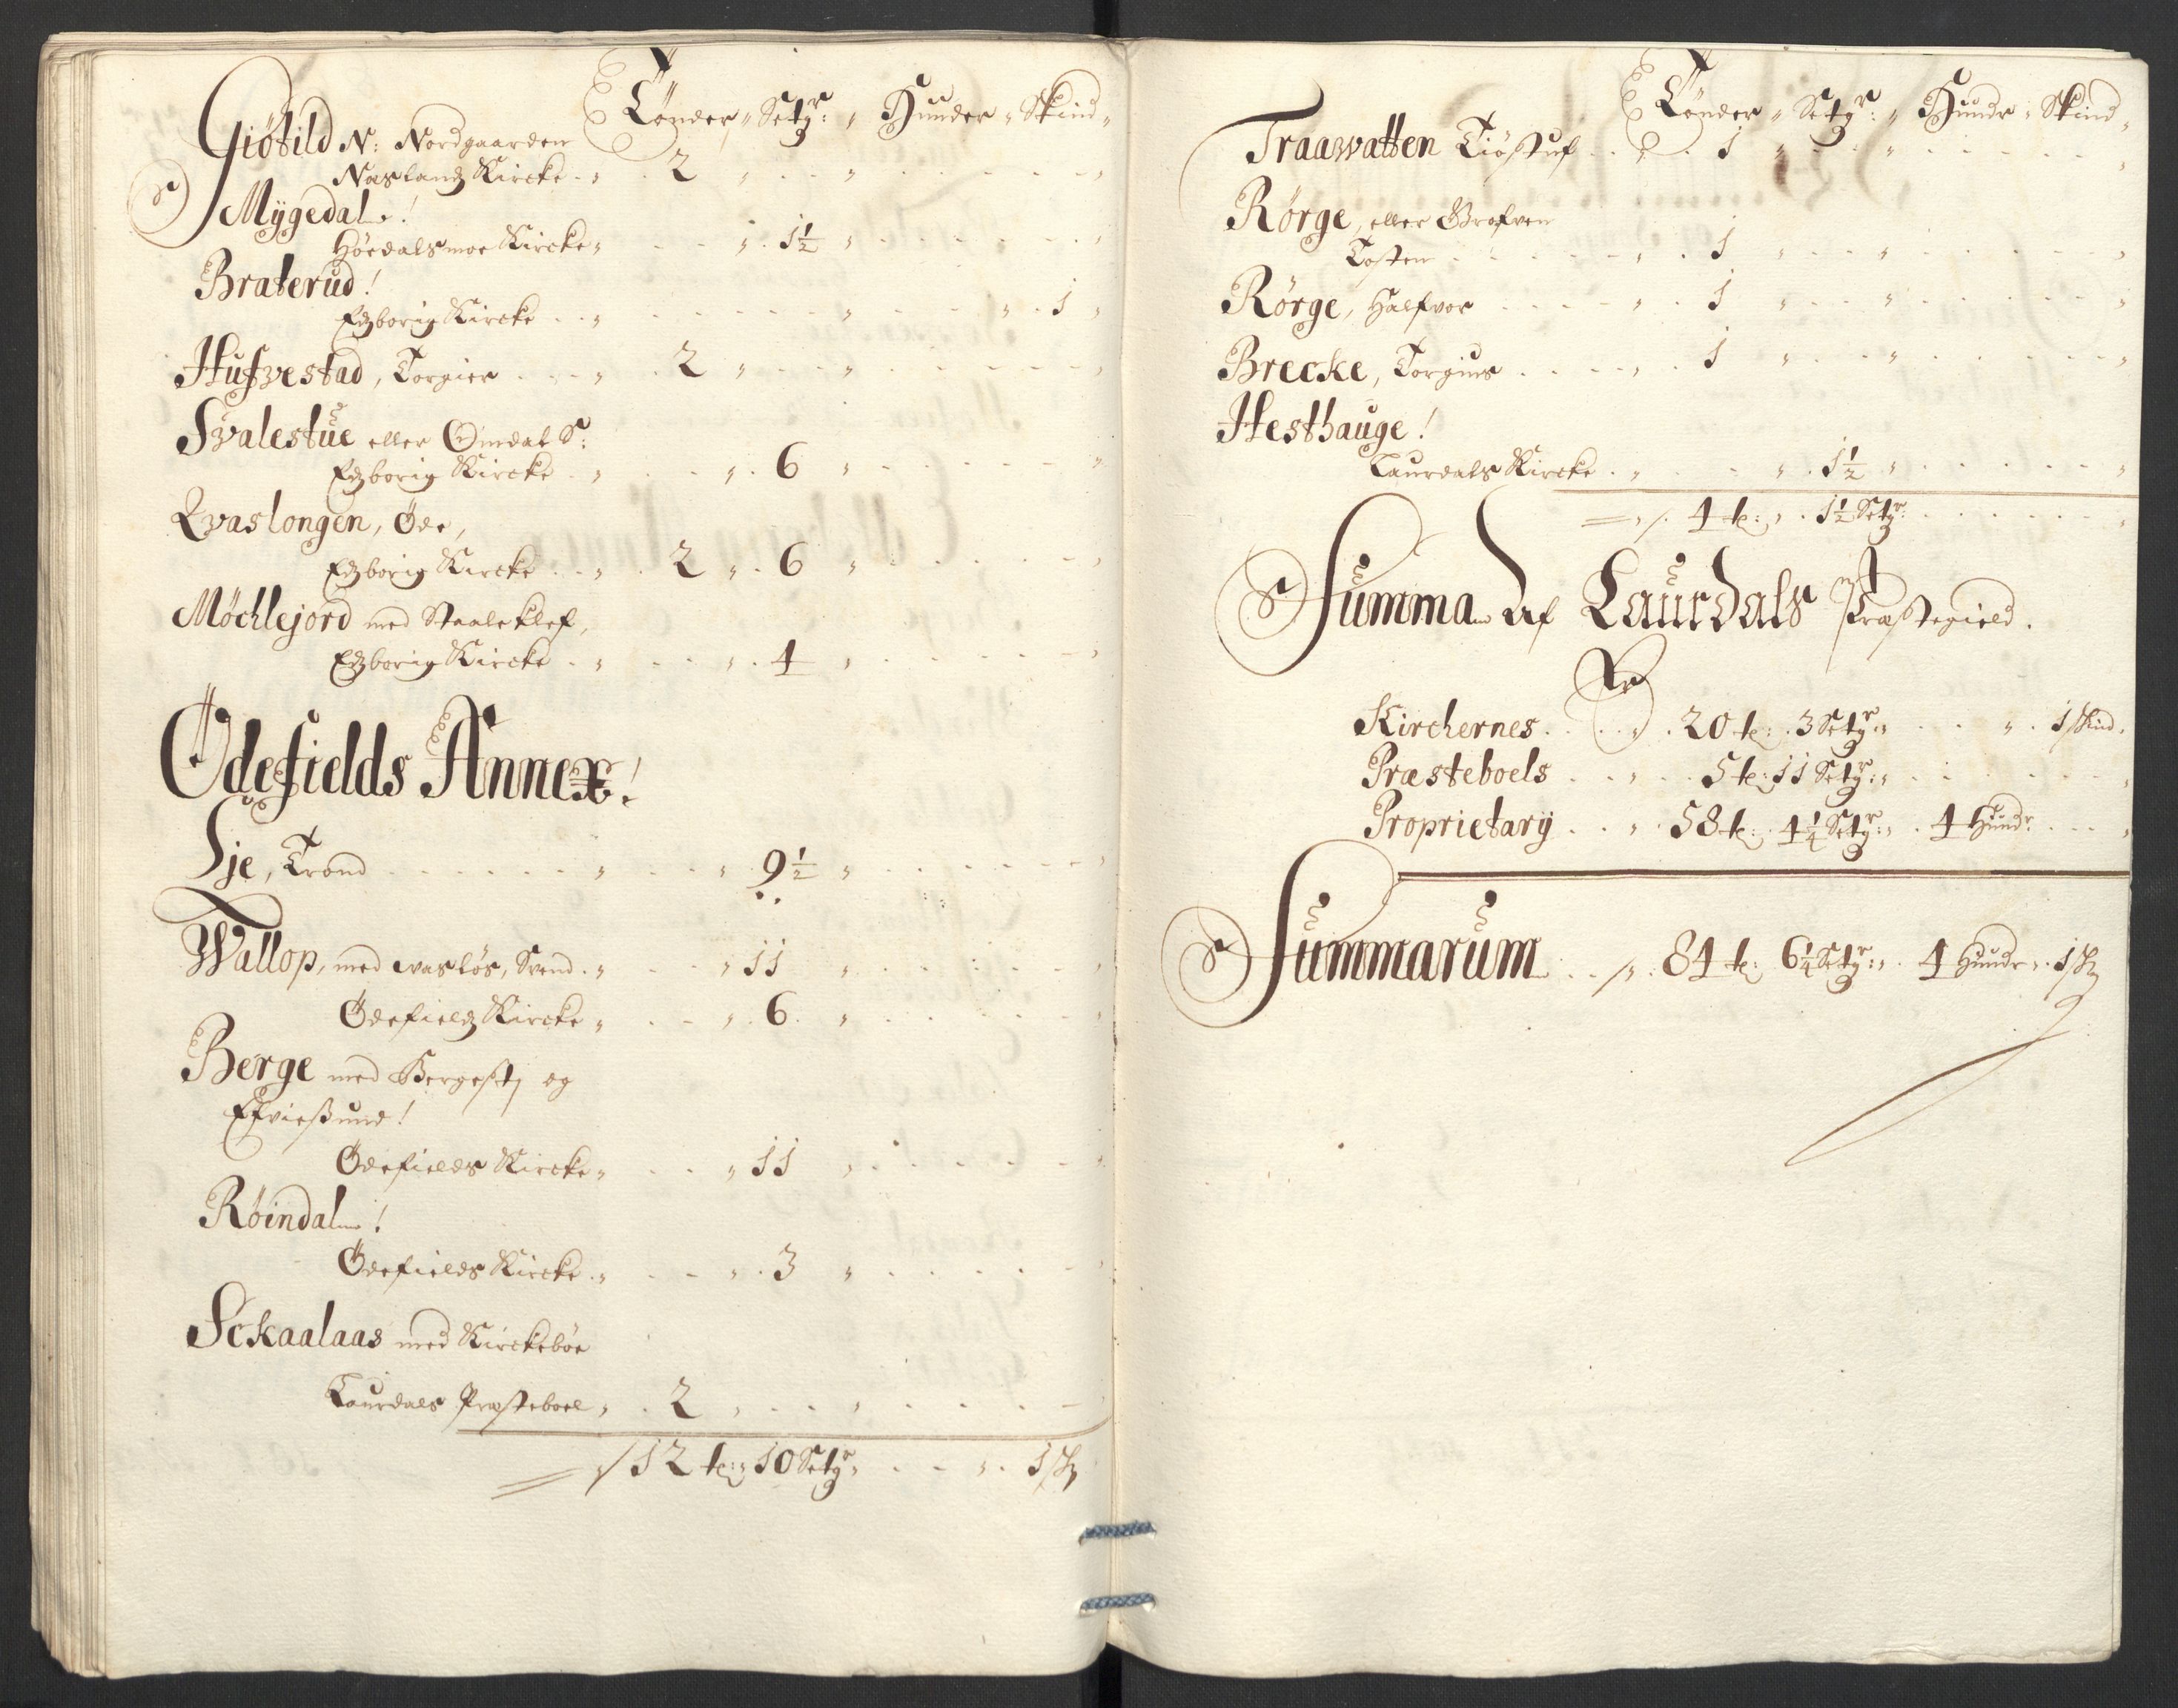 Tönder " Setgr: " Hunder " Skind "
Giötild N: Nordgaarden
Naslandz Kircke . " . 2 " . . " . . . . . "
Mÿgedal !
Höedalsmoe Kircke " . . . " . 1½ " . . . . . "
Braterud !
Edzborig Kircke . . " . . . . . . " . . . " . 1 "
Hufwestad, Torgier . . . " . 2 " . . . " . . . . . "
Svalestue eller Omdal S:
Edzborig Kircke . . " . . . " . 6 " . . . . . "
Qvaslongen, Öde,
Edzborig Kircke . . " . 2 " . 6 " . . . . . "
Möchlejord med Staaleklef,
Edzborig Kircke . " . . . " . 4 " . . . . . "
Ödefields Annex !
Lje, Trond . . . . . . " . . . " 9½ " . . . . . "
Wallop, med wasløs, Svend . " . . . " 11 " . . . . . "
Ödefieldz Kircke " . . . " . 6 . " . . . . . "
Berge med Bergestz og
Efvießund !
Ödefields Kircke " . . . " 11 " . . . . . "
Röindal !
Ödefields Kircke . " . . . " . 3 " . . . . . "
Sckaalaas med Kirckebøe
Laurdals Præsteboel " . 2 " . . . " . . . . . "
12 t: " 10 Setgr " . . . " . 1 sk
Tönder " Setgr: " Hundr " Skind "
Traawatten Tiöstuf . . " . 1 " . . . " . . . . . "
Rörge, eller Grafven
Tosten . . . . . . " . 1 " . . . " . . . . . "
Rörge, Halfvor . . . . " . 1 " . . . " . . . . . "
Brecke, Torgius . . . . " . 1 " . . . " . . . . . "
Hesthauge !
Laurdals Kircke . " . . . " . 1½ " . . . . . "
4 t: " . 1½ Setgr: . . . . . "
Summa Af Laurdals Præstegield.
Kirchernes . . . " . 20 t: . 3 Setgr " . . . " . 1 skind.
Præsteboels . . " . . 5 t: 11 Setgr: " . . . . . "
Proprietarÿ . . " . 58 t: . 4¼ Setgr: " . 4 Hundr . . . "
Summarum . . 84 t: 6¼ Setgr: " . 4 Hundr " . 1 sk